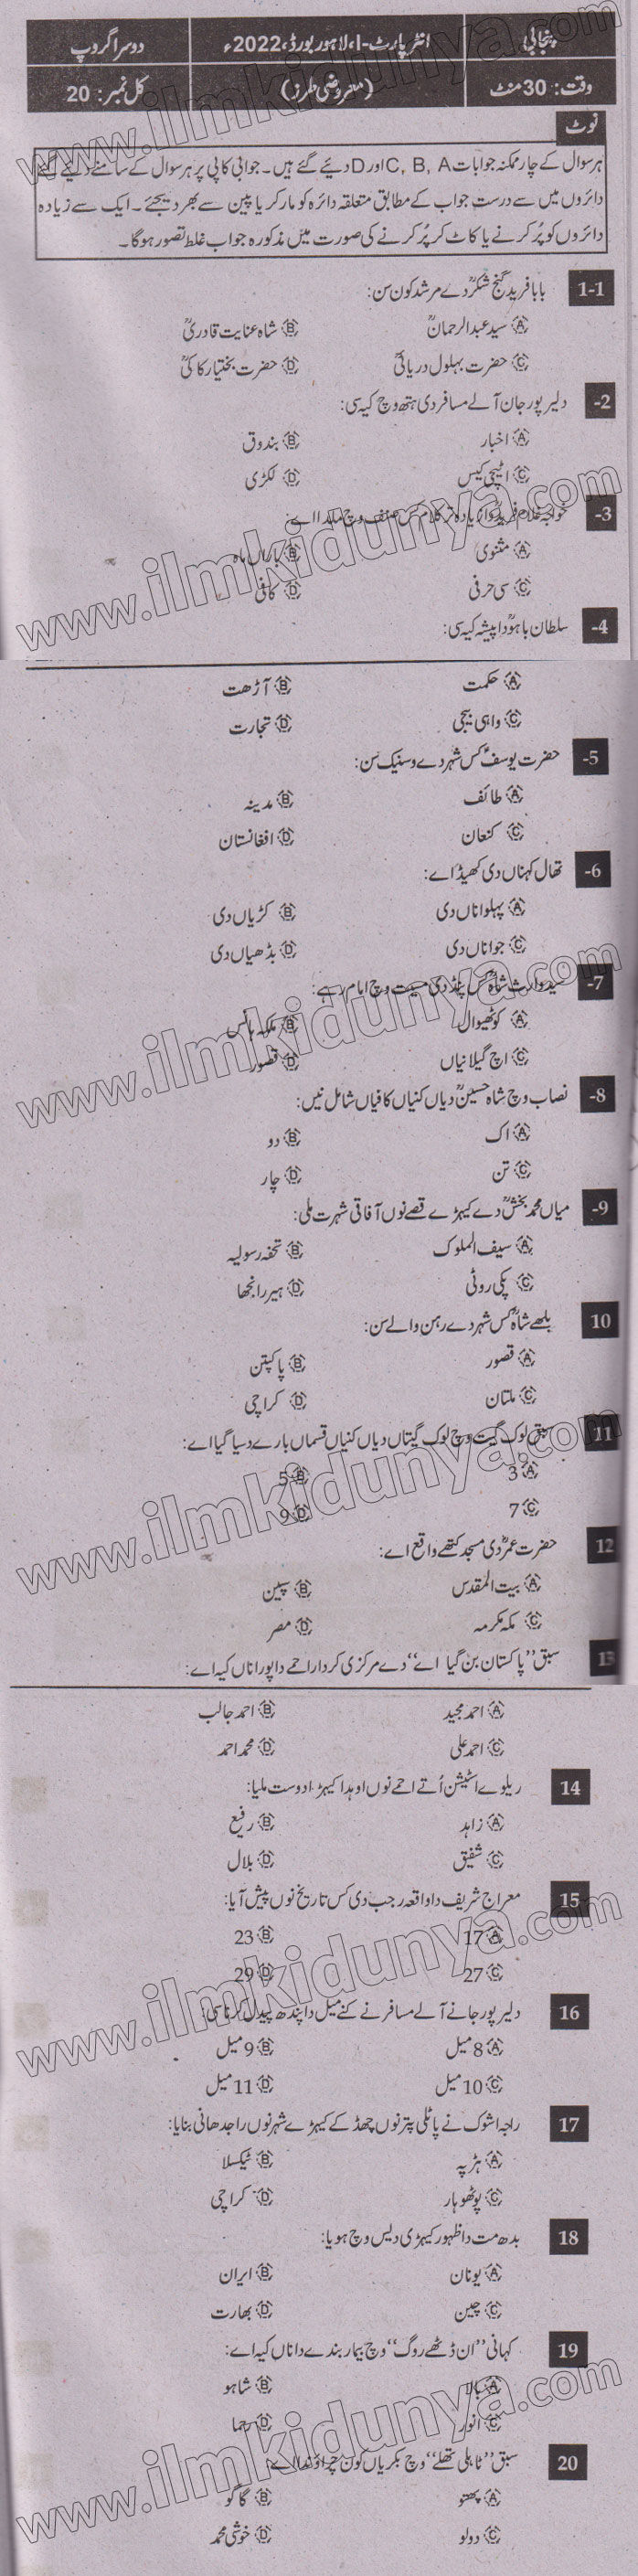 پنجابی انٹر پارٹ-I، لاہور بورڈ، 2022ء دوسرا گروپ
وقت: 30 منٹ (معروضی طرز) کل نمبر: 20
نوٹ
ہر سوال کے چار ممکنہ جوابات C, B, A اور D دیئے گئے ہیں۔ جوابی کاپی پر ہر سوال کے سامنے دیئے گئے
دائروں میں سے درست جواب کے مطابق متعلقہ دائرہ کو مارکر یا پین سے بھر دیجئے۔ ایک سے زیادہ
دائروں کو پُر کرنے یا کاٹ کر پُر کرنے کی صورت میں مذکورہ جواب غلط تصور ہوگا۔
1-1 بابا فرید گنج شکرؒ دے مرشد کون سن:
Ⓐ سید عبدالرحمانؒ Ⓑ شاہ عنایت قادریؒ
Ⓒ حضرت بہلول دریائیؒ Ⓓ حضرت بختیار کاکیؒ
-2 دلیر پور جان آلے مسافر دی ہتھ وچ کیہ سی:
Ⓐ اخبار Ⓑ بندوق
Ⓒ اٹیچی کیس Ⓓ لکڑی
-3 خواجہ غلام فریدؒ دا زیادہ تر کلام کس صنف وچ ملدا اے:
Ⓐ مثنوی Ⓑ باراں ماہ
Ⓒ سی حرفی Ⓓ کافی
-4 سلطان باہوؒ دا پیشہ کیہ سی:
Ⓐ حکمت Ⓑ آڑھت
Ⓒ واہی بیجی Ⓓ تجارت
-5 حضرت یوسفؑ کس شہر دے وسنیک سن:
Ⓐ طائف Ⓑ مدینہ
Ⓒ کنعان Ⓓ افغانستان
-6 تھال کہناں دی کھیڈ اے:
Ⓐ پہلواناں دی Ⓑ کڑیاں دی
Ⓒ جواناں دی Ⓓ بڈھیاں دی
-7 سید وارث شاہؒ کس پنڈ دی مسیت وچ امام رہے:
Ⓐ کوٹھیوال Ⓑ ملکہ ہانس
Ⓒ اچ گیلانیاں Ⓓ قصور
-8 نصاب وچ شاہ حسینؒ دیاں کنیاں کافیاں شامل نیں:
Ⓐ اک Ⓑ دو
Ⓒ تن Ⓓ چار
-9 میاں محمد بخشؒ دے کیہڑے قصے نوں آفاقی شہرت ملی:
Ⓐ سیف الملوک Ⓑ تحفہ رسولیہ
Ⓒ پکی روٹی Ⓓ ہیر رانجھا
10 بلھے شاہؒ کس شہر دے رہن والے سن:
Ⓐ قصور Ⓑ پاکپتن
Ⓒ ملتان Ⓓ کراچی
11 سبق لوک گیت وچ لوک گیتاں دیاں کنیاں قسماں بارے دسیا گیا اے:
Ⓐ 3 Ⓑ 5
Ⓒ 7 Ⓓ 9
12 حضرت عمرؓ دی مسجد کتھے واقع اے:
Ⓐ بیت المقدس Ⓑ سپین
Ⓒ مکہ مکرمہ Ⓓ مصر
13 سبق ”پاکستان بن گیا اے“ دے مرکزی کردار احمے دا پورا ناں کیہ اے:
Ⓐ احمد مجید Ⓑ احمد جالب
Ⓒ احمد علی Ⓓ محمد احمد
14 ریلوے اسٹیشن اُتے احمے نوں اوہدا کیہڑا دوست ملیا:
Ⓐ زاہد Ⓑ رفیع
Ⓒ شفیق Ⓓ بلال
15 معراج شریف دا واقعہ رجب دی کس تاریخ نوں پیش آیا:
Ⓐ 17 Ⓑ 23
Ⓒ 27 Ⓓ 29
16 دلیر پور جانے آلے مسافر نے کنے میل دا پندھ پیدل کرنا سی:
Ⓐ 8 میل Ⓑ 9 میل
Ⓒ 10 میل Ⓓ 11 میل
17 راجہ اشوک نے پاٹلی پتر نوں چھڈ کے کیہڑے شہر نوں راجدھانی بنایا:
Ⓐ ہڑپہ Ⓑ ٹیکسلا
Ⓒ پوٹھوہار Ⓓ کراچی
18 بدھ مت دا ظہور کیہڑی دیس وچ ہویا:
Ⓐ یونان Ⓑ ایران
Ⓒ چین Ⓓ بھارت
19 کہانی ”ان ڈٹھے روگ“ وچ بیمار بندے دا ناں کیہ اے:
Ⓐ بالا Ⓑ شاہو
Ⓒ انور Ⓓ رحما
20 سبق ”ٹاہلی تھلے“ وچ بکریاں کون چراؤندا اے:
Ⓐ پھتو Ⓑ گاگو
Ⓒ دولو Ⓓ خوشی محمد
www.ilmkidunya.com
www.ilmkidunya.com
www.ilmkidunya.com
www.ilmkidunya.com
www.ilmkidunya.com
www.ilmkidunya.com